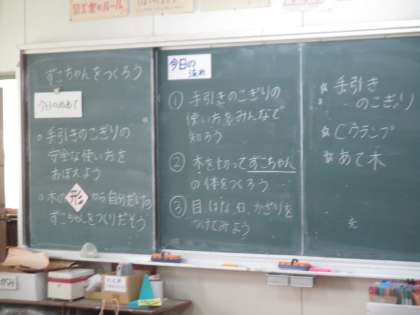 ずこちゃんをつくろう
今日のめあて
手引きのこぎりの
安全な使い方を
おぼえよう
木の形から自分だけの
ずこちゃんをつくりだそう
今日の
流れ
① 手引きのこぎりの
使い方をみんなで
知ろう
② 木を切ってずこちゃん
の体をつくろう
③ 目、はな、口、かざりを
つけてみよう
手引き
のこぎり
Cクランプ
あて木